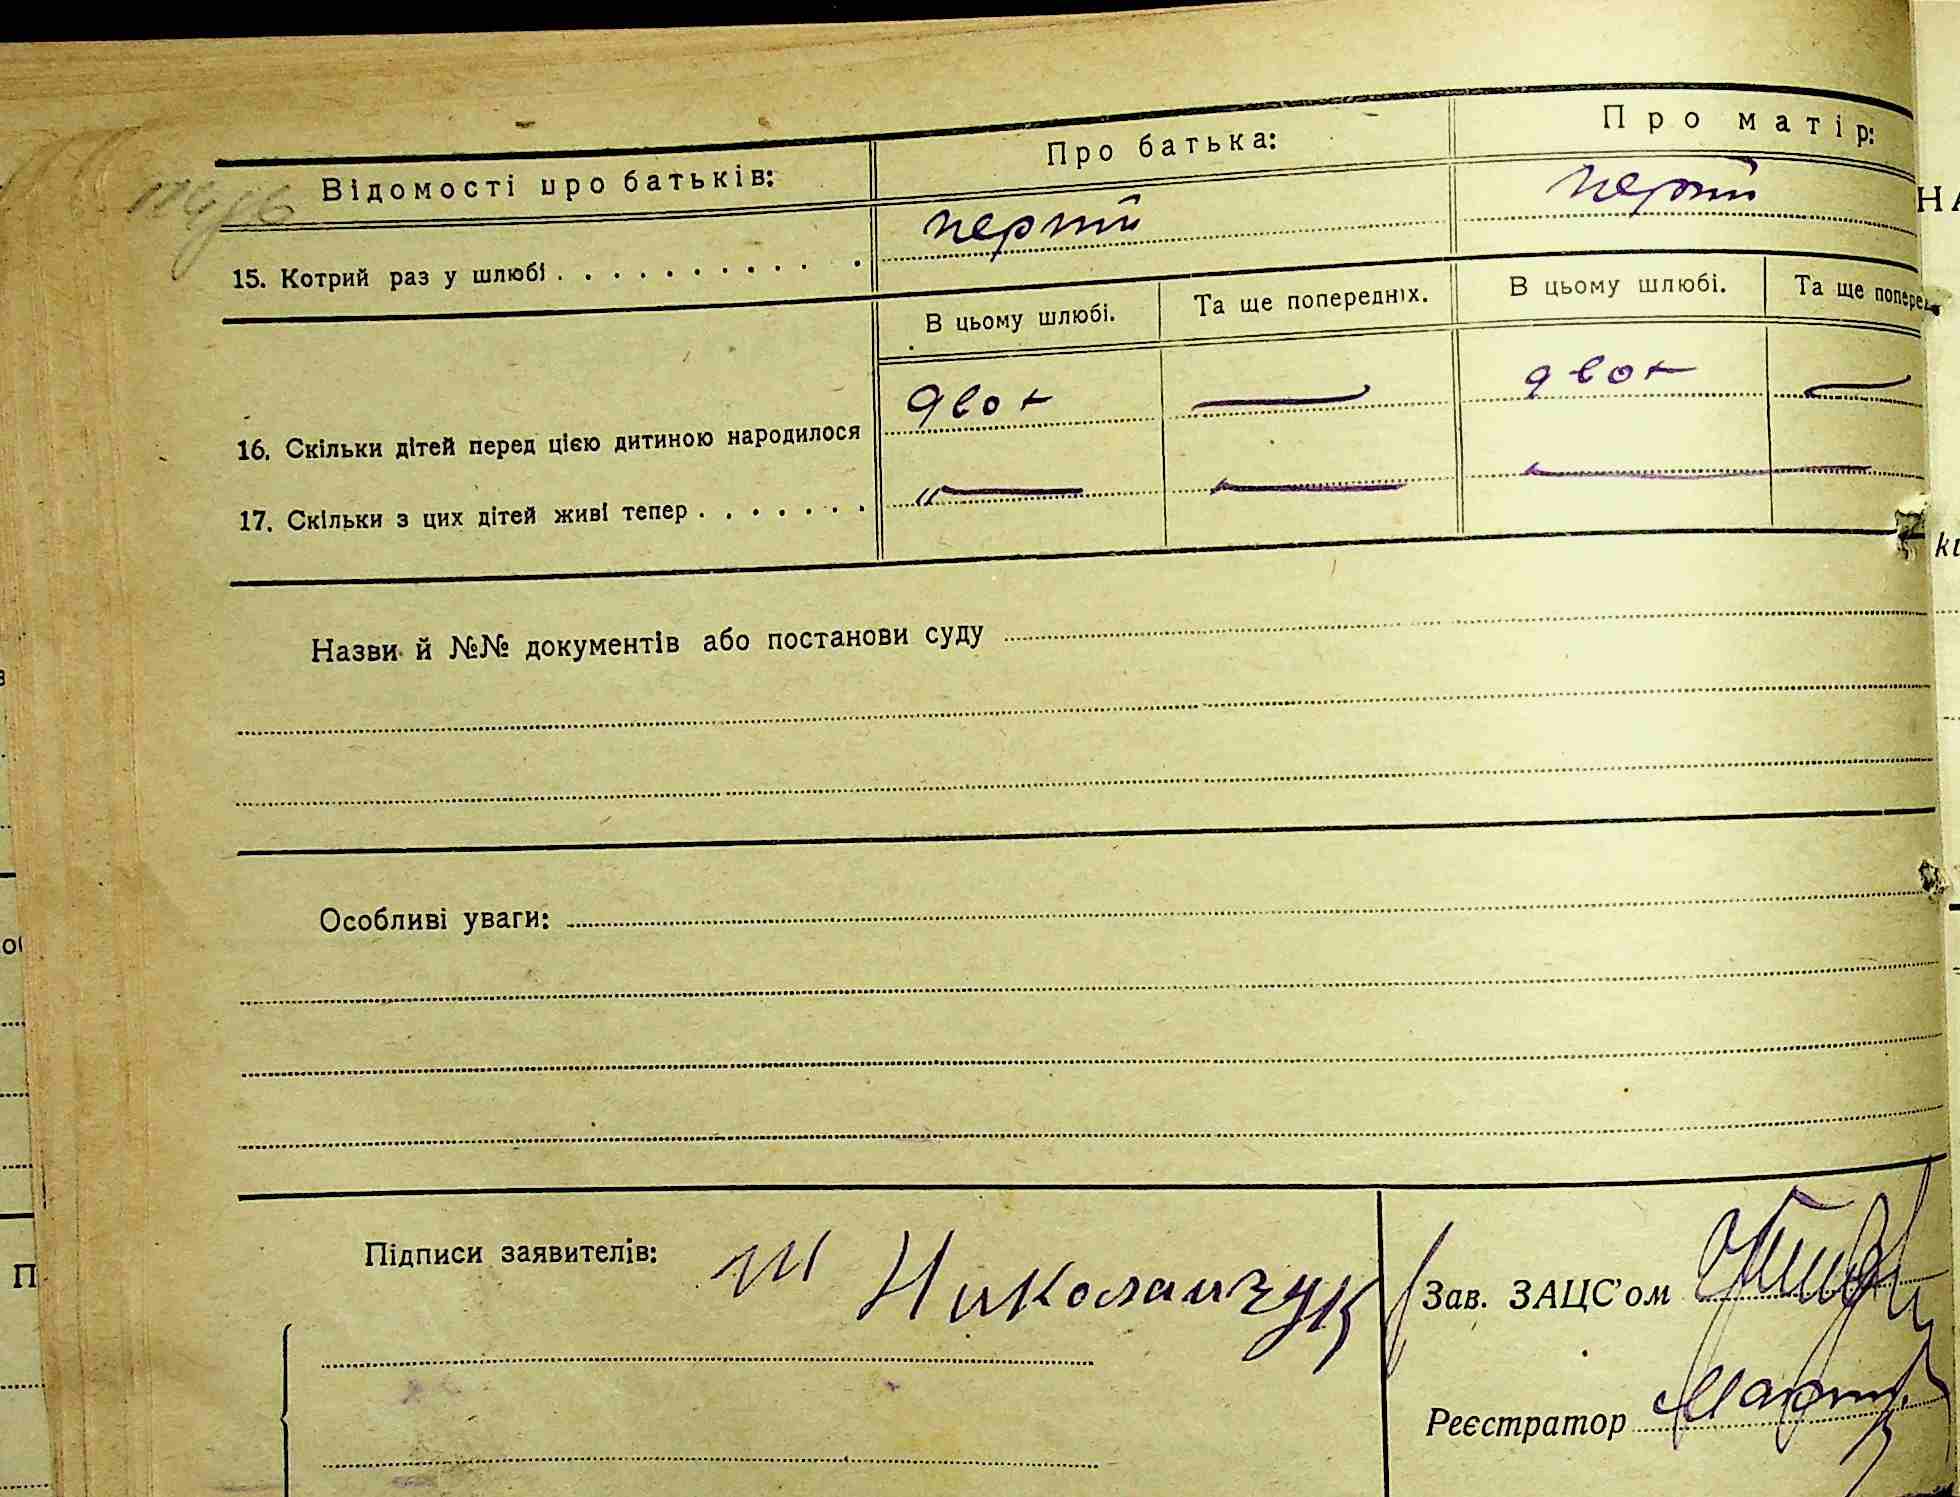 Відомості про батьків: Про батька: Про матір:
15. Котрий раз у шлюбі . . . . . . . . . . . перший перший
В цьому шлюбі. Та ще попередніх. В цьому шлюбі. Та ще поперед
16. Скільки дітей перед цією дитиною народилося двох — двох —
17. Скільки з цих дітей живі тепер . . . . . . . " — — — —
Назви й №№ документів або постанови суду
Особливі уваги:
Підписи заявителів: Николайчук
Зав. ЗАЦС'ом
Реєстратор